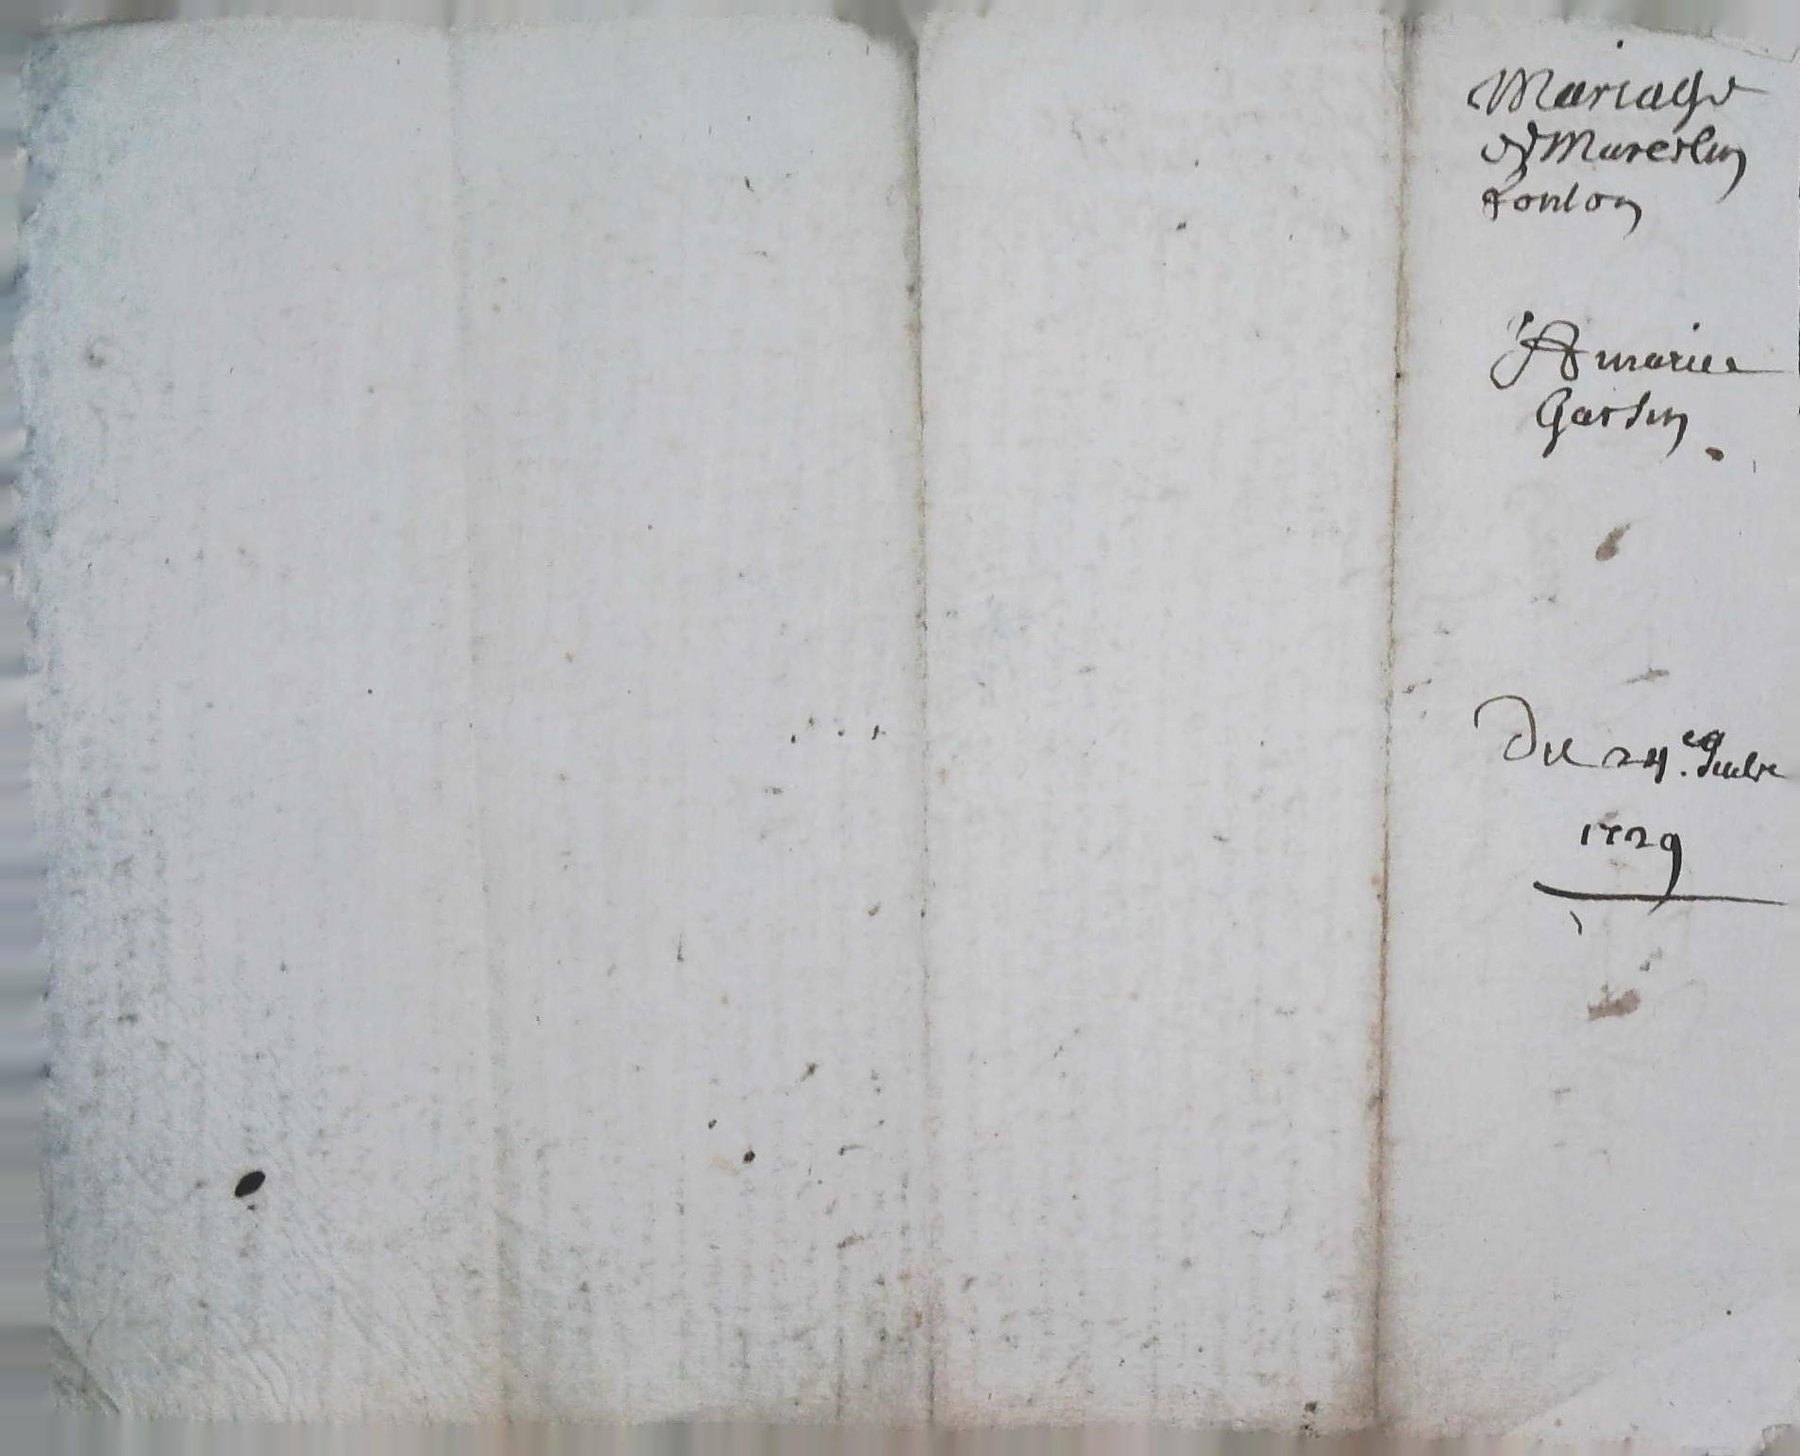 Mariage
de Marcelin
Toulon
& marie
Garsin
Du 24e 9bre
1729